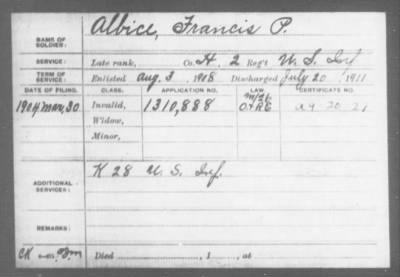 Albice, Francis P.
NAME OF SOLDIER:
SERVICE: Late rank, Co. H, 2 Reg't U. S. Inf
TERM OF SERVICE: Enlisted Aug. 3 1908 Discharged July 20 1911
DATE OF FILING. CLASS. APPLICATION NO. LAW CERTIFICATE NO.
Invalid, 1,310,888
Widow,
Minor,
ADDITIONAL SERVICES: K 28 U. S. Inf.
REMARKS:
CK Died , 1 , at